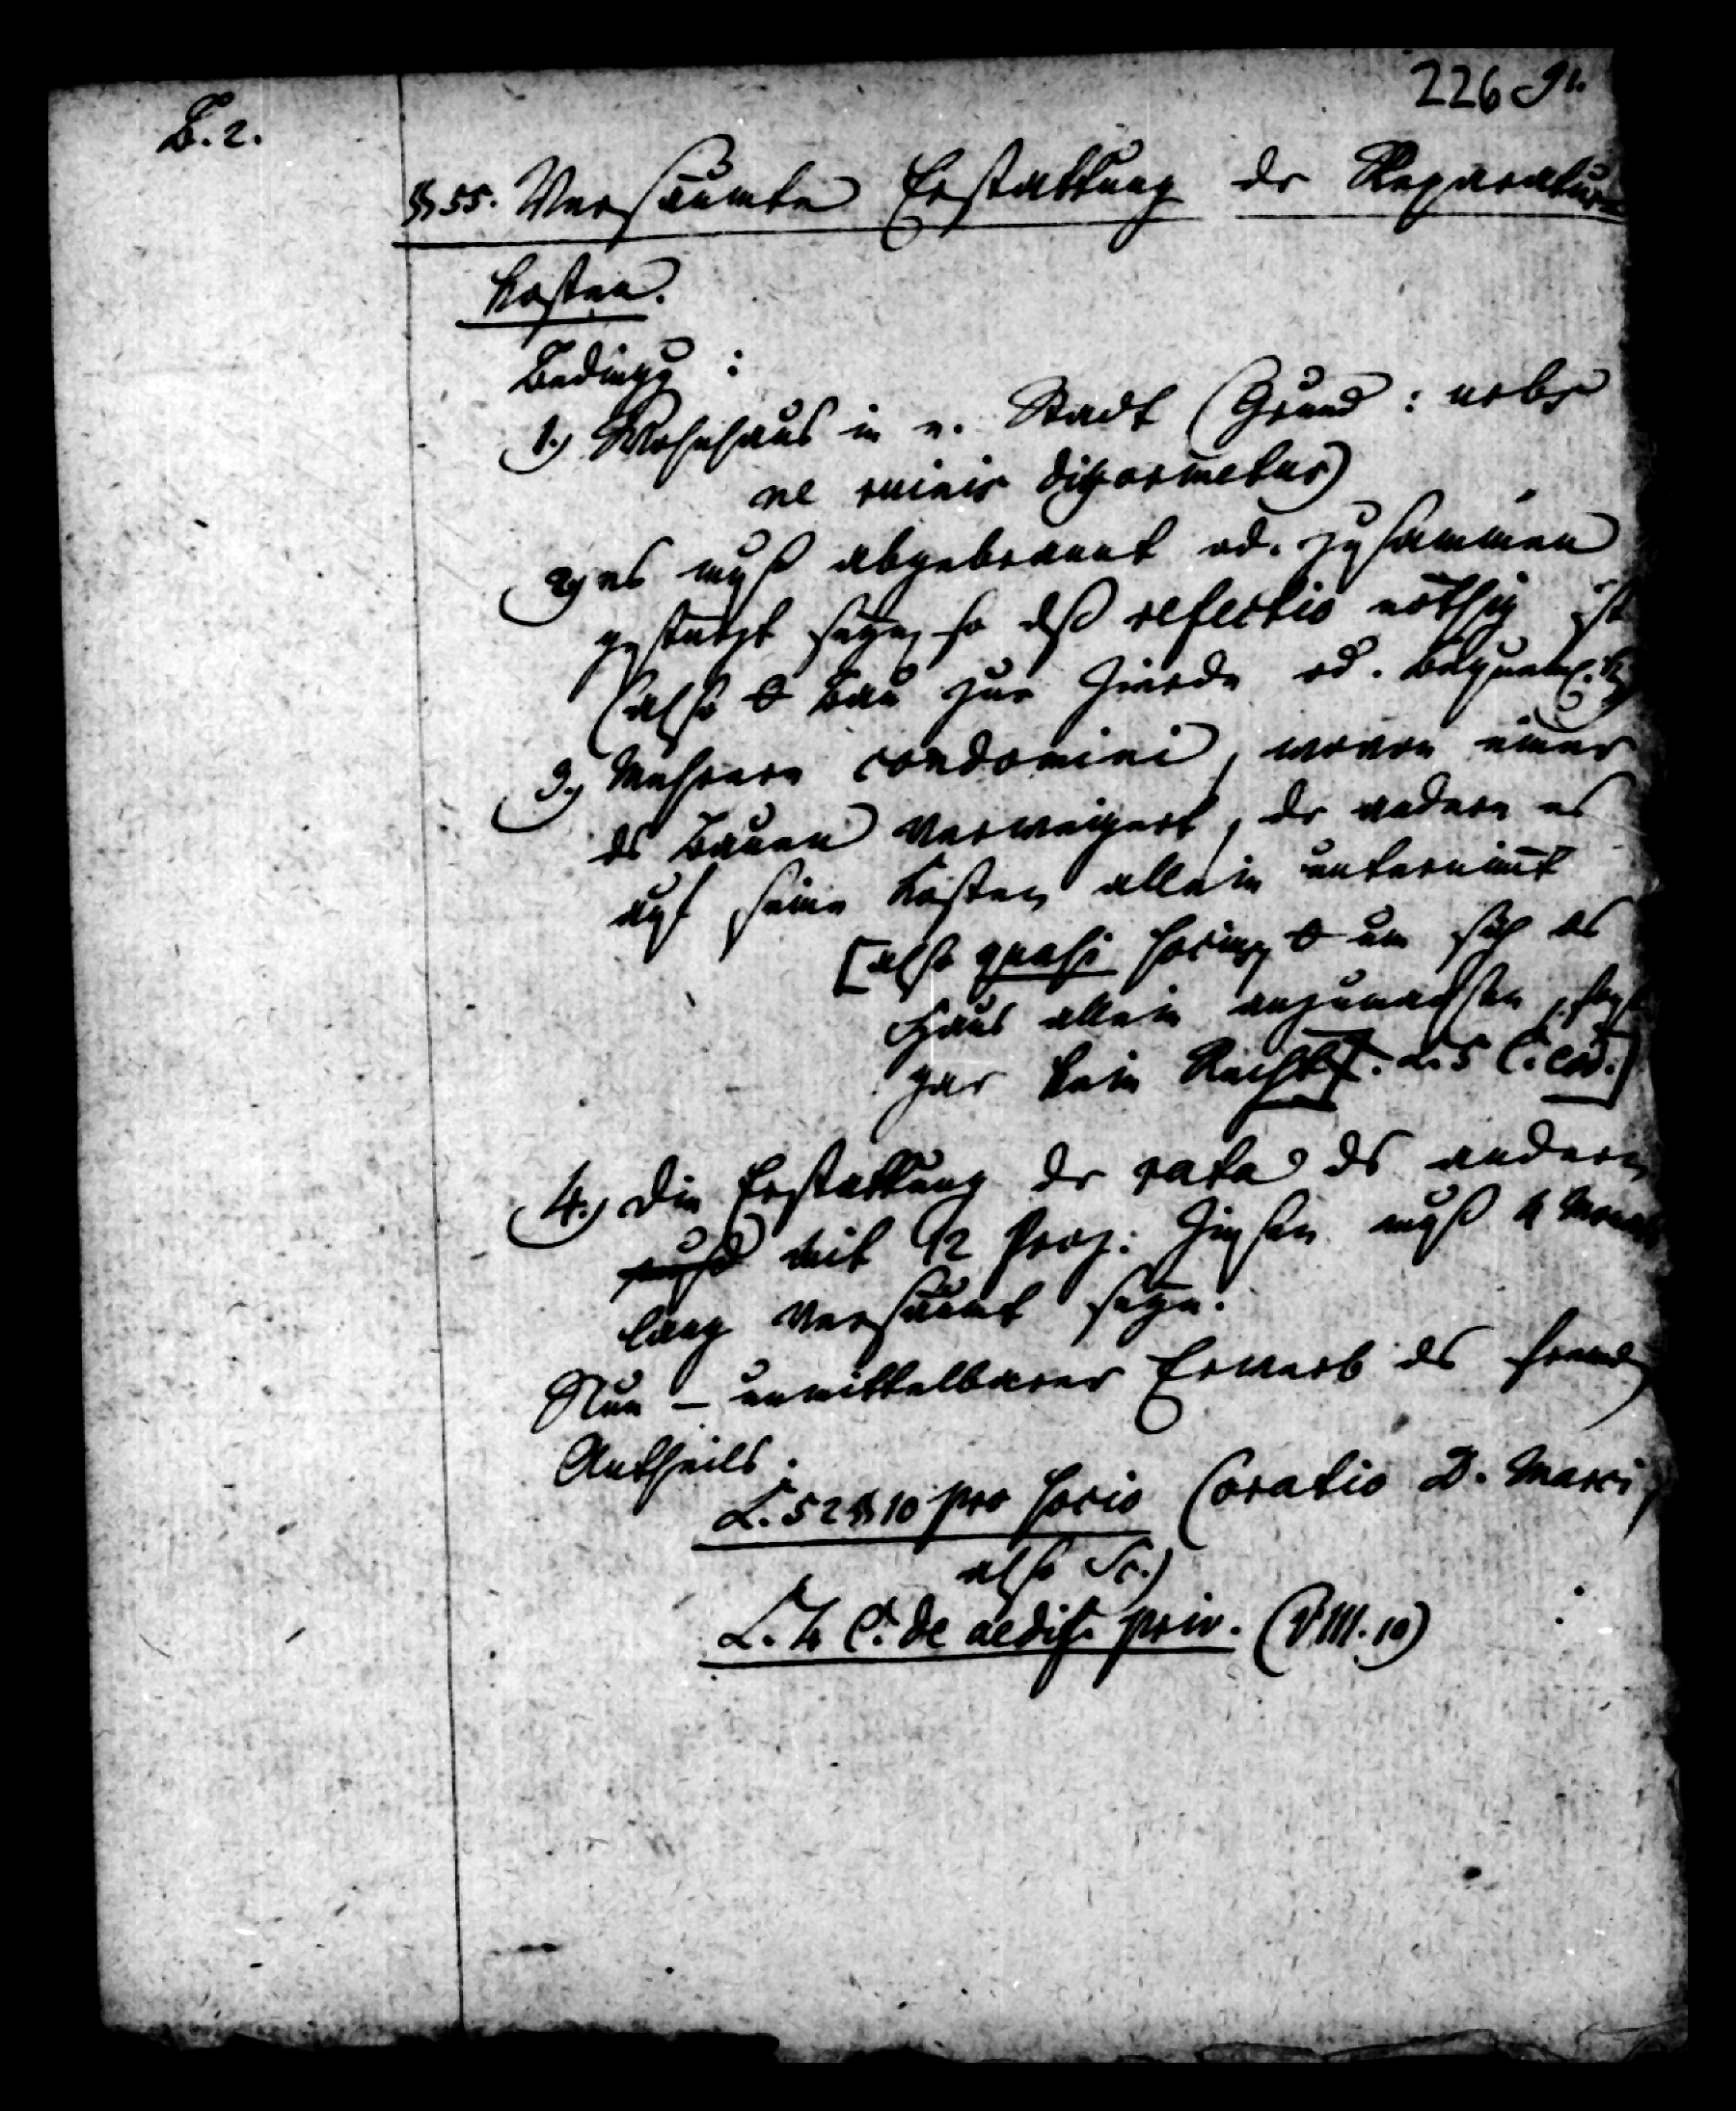 226 91.
B. 2.
§ 55. Versäumte Erstattung dr Reparatur
kosten.
Bedingg :
1.) Wohnhaus in e. Stadt (Grund : urbs
ne ruinis difformetur)
2) es muß abgebrannt od. zusammen
gestürzt seyn, so dß refectio nöthig ist
(also 0 Bau zur Zierde od. Bequemlk.)
3.) Mehrere condomini, wovon einer
ds Bauen verweigert, dr andere es
auf seine Kosten allein unternimt
[also quasi socius, 0 um sich ds
Haus allein anzumaßen, sonst
gar kein Recht. L. 5 C. eod.]
4.) die Erstattung dr rata ds andern
mit 12 Proz. Zinsen muß 4 Monate
lang versäumt seyn.
Nun – unmittelbarer Erwerb ds fremden
Antheils.
L. 52 § 10 pro socio (oratio D. Marci,
also Sc.)
L. 4 C. de aedif. priv. (VIII. 10)